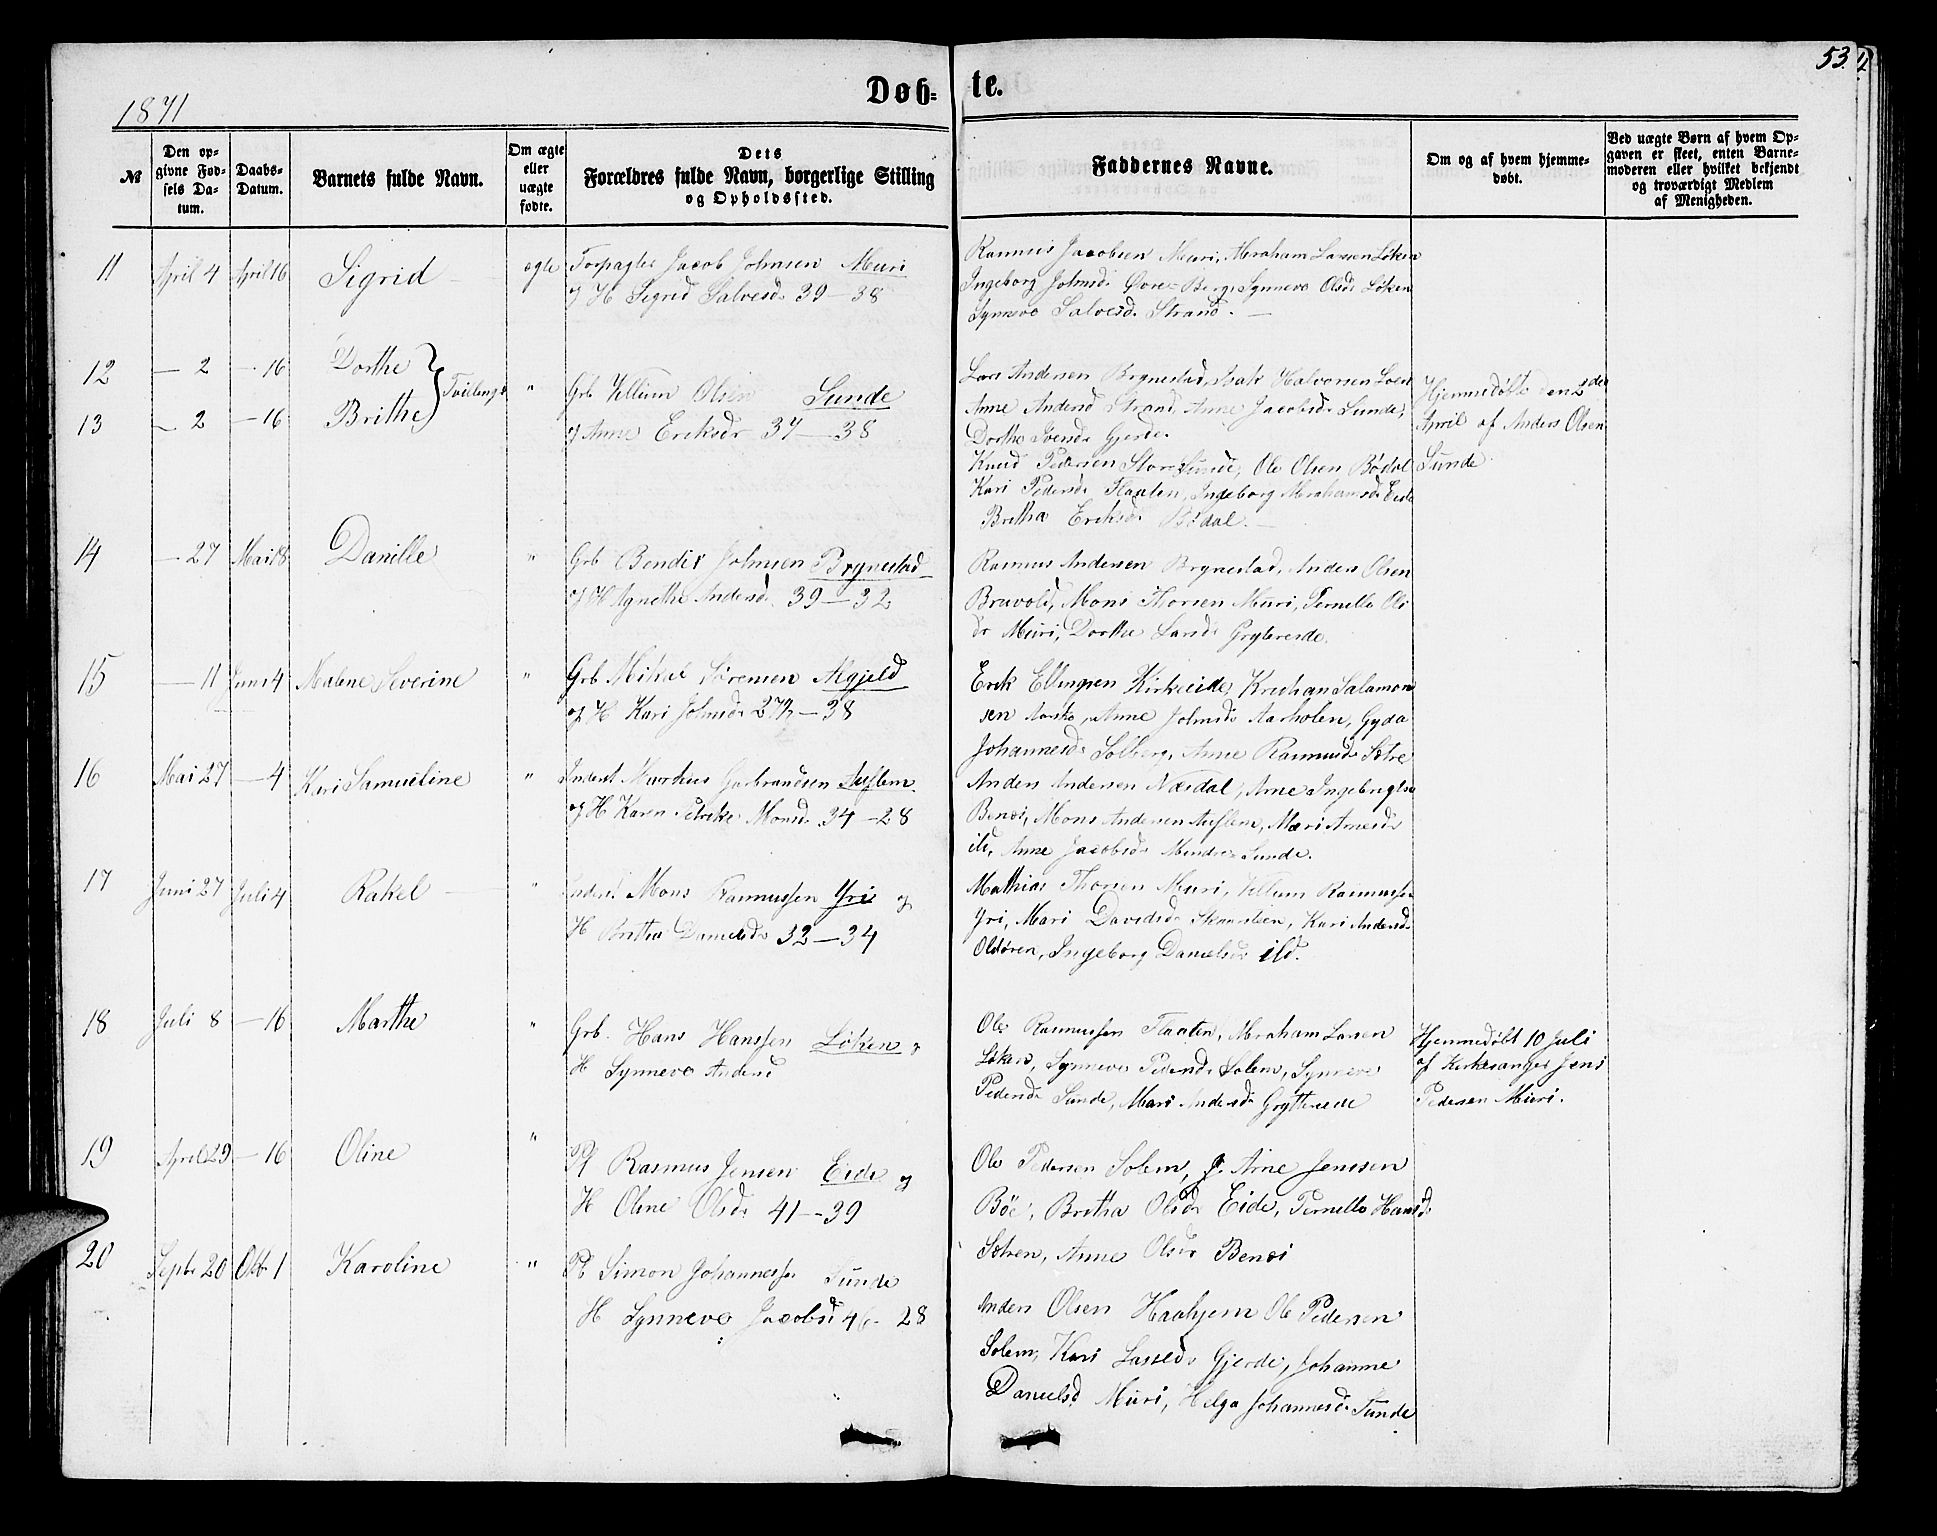 53.
1871
Døb-
te.
№
Den opgivne Fødsels Datum.
Daabs-Datum.
Barnets fulde Navn.
Om ægte eller uægte fødte.
Dets Forældres fulde Navn, borgerlige Stilling og Opholdssted.
Faddernes Navne.
Om og af hvem hjemmedøbt.
Ved uægte Børn af hvem Opgaven er skeet, enten Barnemoderen eller hvilket bekjendt og troværdigt Medlem af Menigheden.
11 April 4 April 16 Sigrid ægte Jacob Johnsen Muri
og H Sigrid Salvesd. 39 - 38
Rasmus Jacobsen Muri, Abraham Larsen Løken
Ingeborg Johnsd. Øvre-Berg, Synneve Olsd. Løken
Synneve Salvesd. Strand.
12 - 2 - 16 Dorthe
13 - 2 - 16 Brithe
Tvillinger " Grb Villum Olsen Sunde
og Anne Eriksdr 37 - 38
Lars Andersen Brynestad, Isak Halvorsen Loen
Anne Andersd Strand, Anne Jacobsd. Sunde,
Dorthe Svensd. Gjerde.
Knud Pedersen Store Sunde, Ole Olsen Bødal
Kari Pedersd. Flaaten, Ingeborg Abrahamsd. Eide
Britha Eriksd. Bødal.
Hjemmedøbte den 2den
April af Anders Olsen
Sunde
14 - 27 Mai 18 Danille " Grb Bendix Johnsen Brynestad
og H Agnethe Andersd. 39 - 32
Rasmus Andersen Brynestad, Anders Olsen
Bruvold, Mons Thorsen Muri, Pernelle Ols
dr Muri, Dorthe Larsd. Grytereide.
15 - 11 Juni 4 Malene Severine " Grb Mikal Sørensen Algjeld
og H Kari Johnsd. 27½ - 38
Erik Ellingsen Kirkeeide, Kristian Salamon
sen, Anne Johnsd. Aarholen, Gyda
Johannesd. Solberg, Anne Rasmusd. Sætre
16 Mai 27 - 4 Kari Samueline " Inderst Markus Gerbrandsen Auflem
og H Karen Petrike Monsd. 34 - 28
Anders Andersen Næsdal, Arne Ingebrigtsen
Benøi, Mons Andersen Auflem, Mari Arnesd.
ibd, Anne Jacobsd. Mindre-Sunde.
17 Juni 27 Juli 4 Rakel " Inderst Mons Rasmussen Yri og
H Britha Danielsd. 32 - 34
Mathias Thorsen Muri, Villum Rasmussen
Yri, Mari Davidsd. Skaarsteen, Kari Andersd.
Oldøren, Ingeborg Danielsd. ibd.
18 Juli 8 - 16 Marthe " Grb. Hans Hanssen Løken og
H Synneve Andersd
Ole Rasmussen Flaaten, Abraham Larsen
Løken, Synneve Pedersd. Solem, Synneve
Pedersd. Sunde, Mari Andersd. Grytereide
Hjemmedøbt 10 Juli
af Kirkesanger Jens
Pedersen Muri.
19 April 29 - 16 Oline " Pl Rasmus Jensen Eide og
H Oline Olsd. 41 - 39
Ole Pedersen Solem, Arne Jenssen
Böe, Britha Olsdr Eide, Pernelle Hansd.
Sætren, Anne Olsdr Benøi
20 Septr 20 Oktr 1 Karoline " Pl Simon Johannessen Sunde
H Synneve Jacobsd 46 - 28
Anders Olsen Haahjem Ole Pedersen
Solem, Kari Lassesdr Gjerde, Johanne
Danielsd. Muri, Helga Johannesd. Sunde